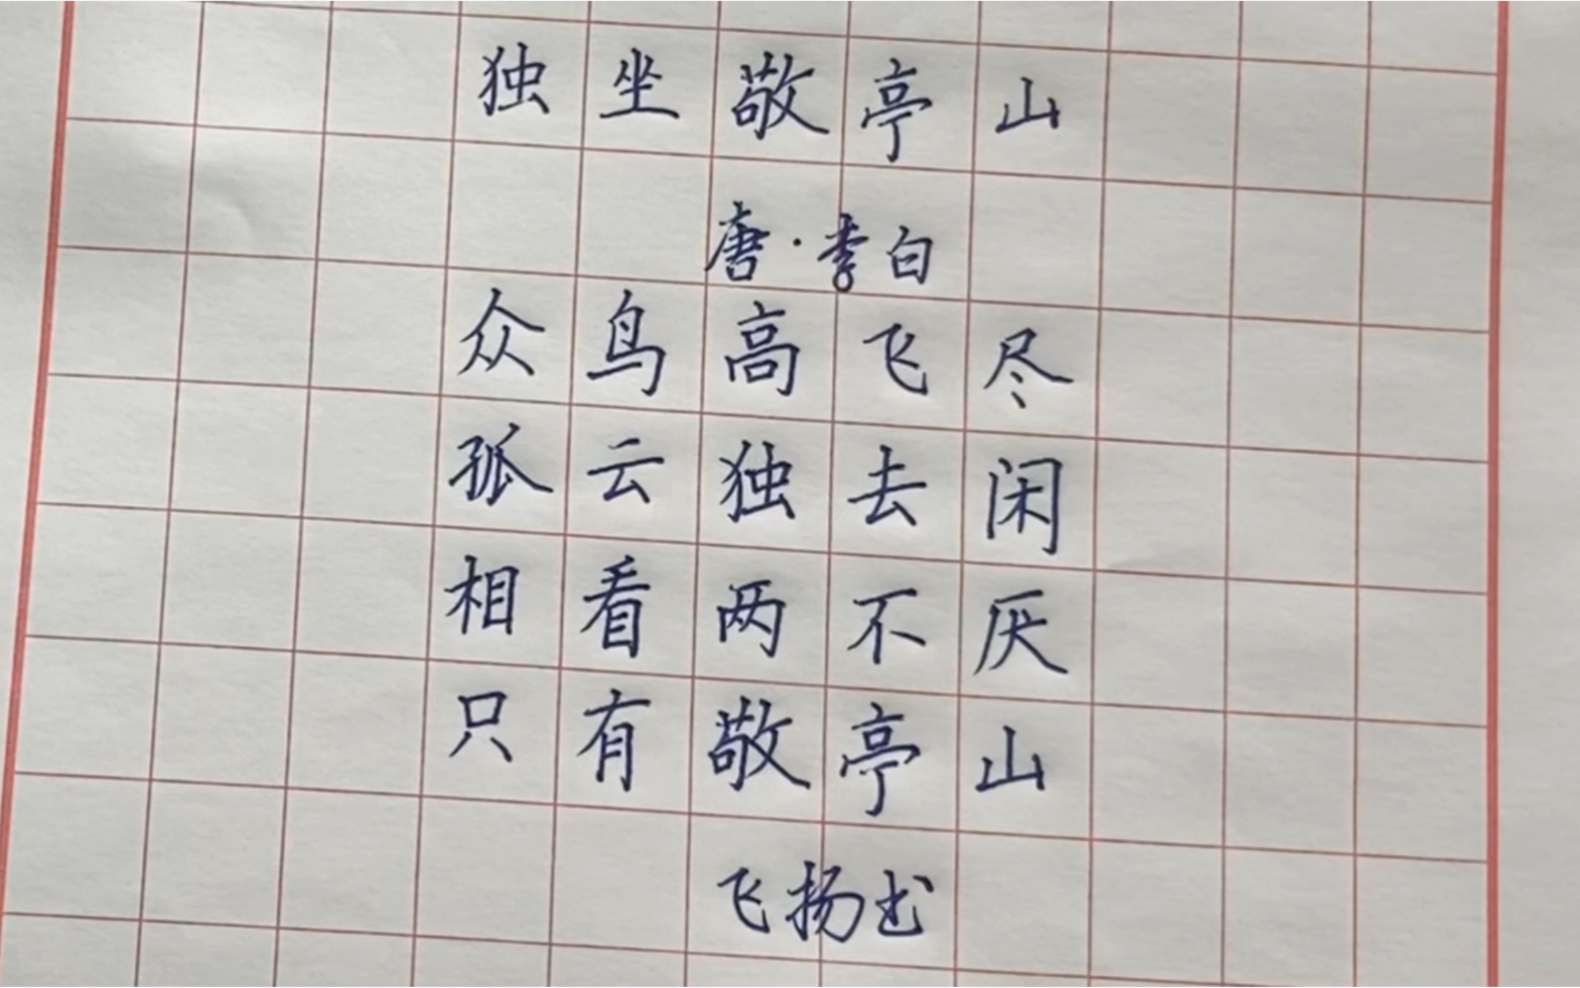 独坐敬亭山
唐·李白
众鸟高飞尽
孤云独去闲
相看两不厌
只有敬亭山
飞扬书